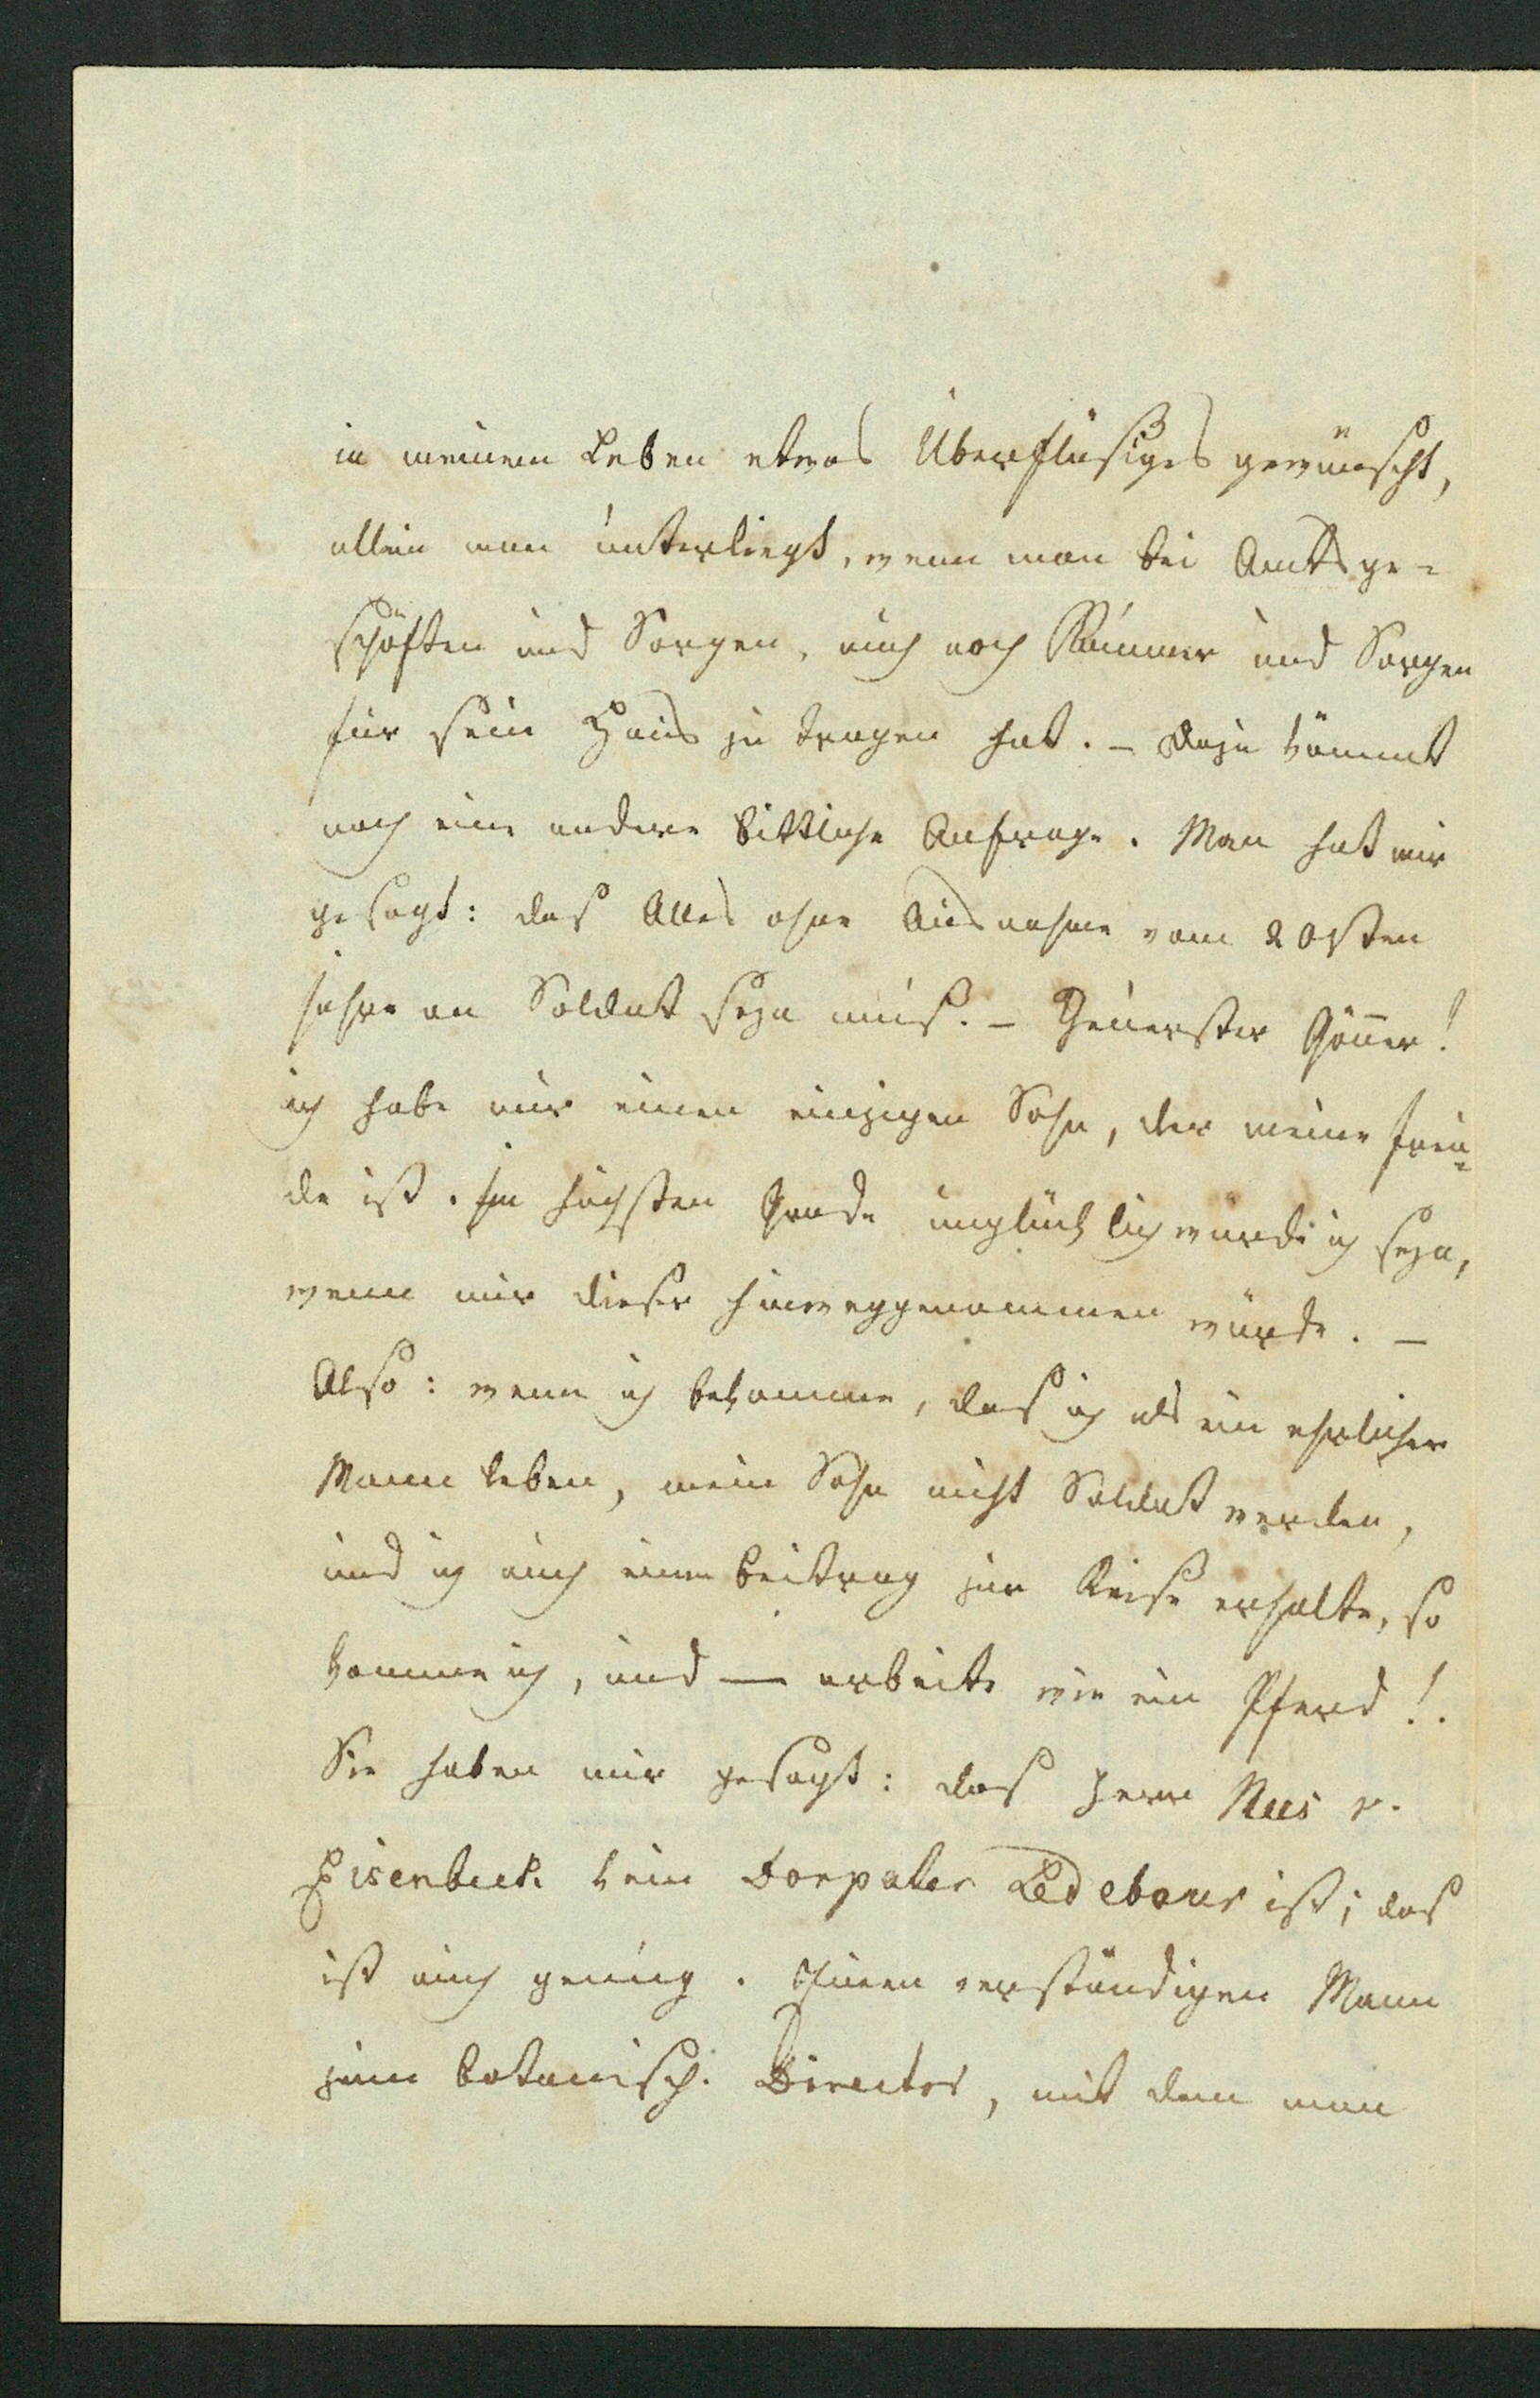 in meinem Leben etwas Überflüßiges gewünscht,
allein man unterliegt, wenn man bei Amtsge-
schäften und Sorgen, auch noch Kummer und Sorgen
für sein Haus zu tragen hat. – Dazu kömmt
noch eine andere bittliche Anfrage. Man hat mir
gesagt: daß Alles ohne Ausnahme vom 20sten
Jahre an Soldat seyn muß. – Theuerster Gönner!
ich habe nur einen einzigen Sohn, der meine Freu-
de ist. Im höchsten Grade unglücklich würde ich seyn,
wenn mir dieser hinweggenommen würde. –
Also: wenn ich bekomme, daß ich als ein ehrlicher
Mann leben, mein Sohn nicht Soldat werden,
und ich auch einen Beitrag zur Reise erhalte, so
komme ich, und — arbeite wie ein Pferd!.
Sie haben mir gesagt: daß Herr Nees v.
Esenbeck kein Dorpater Ledebour ist; das
ist auch genug. Einen verständigen Mann
zum botanisch. Director, mit dem man